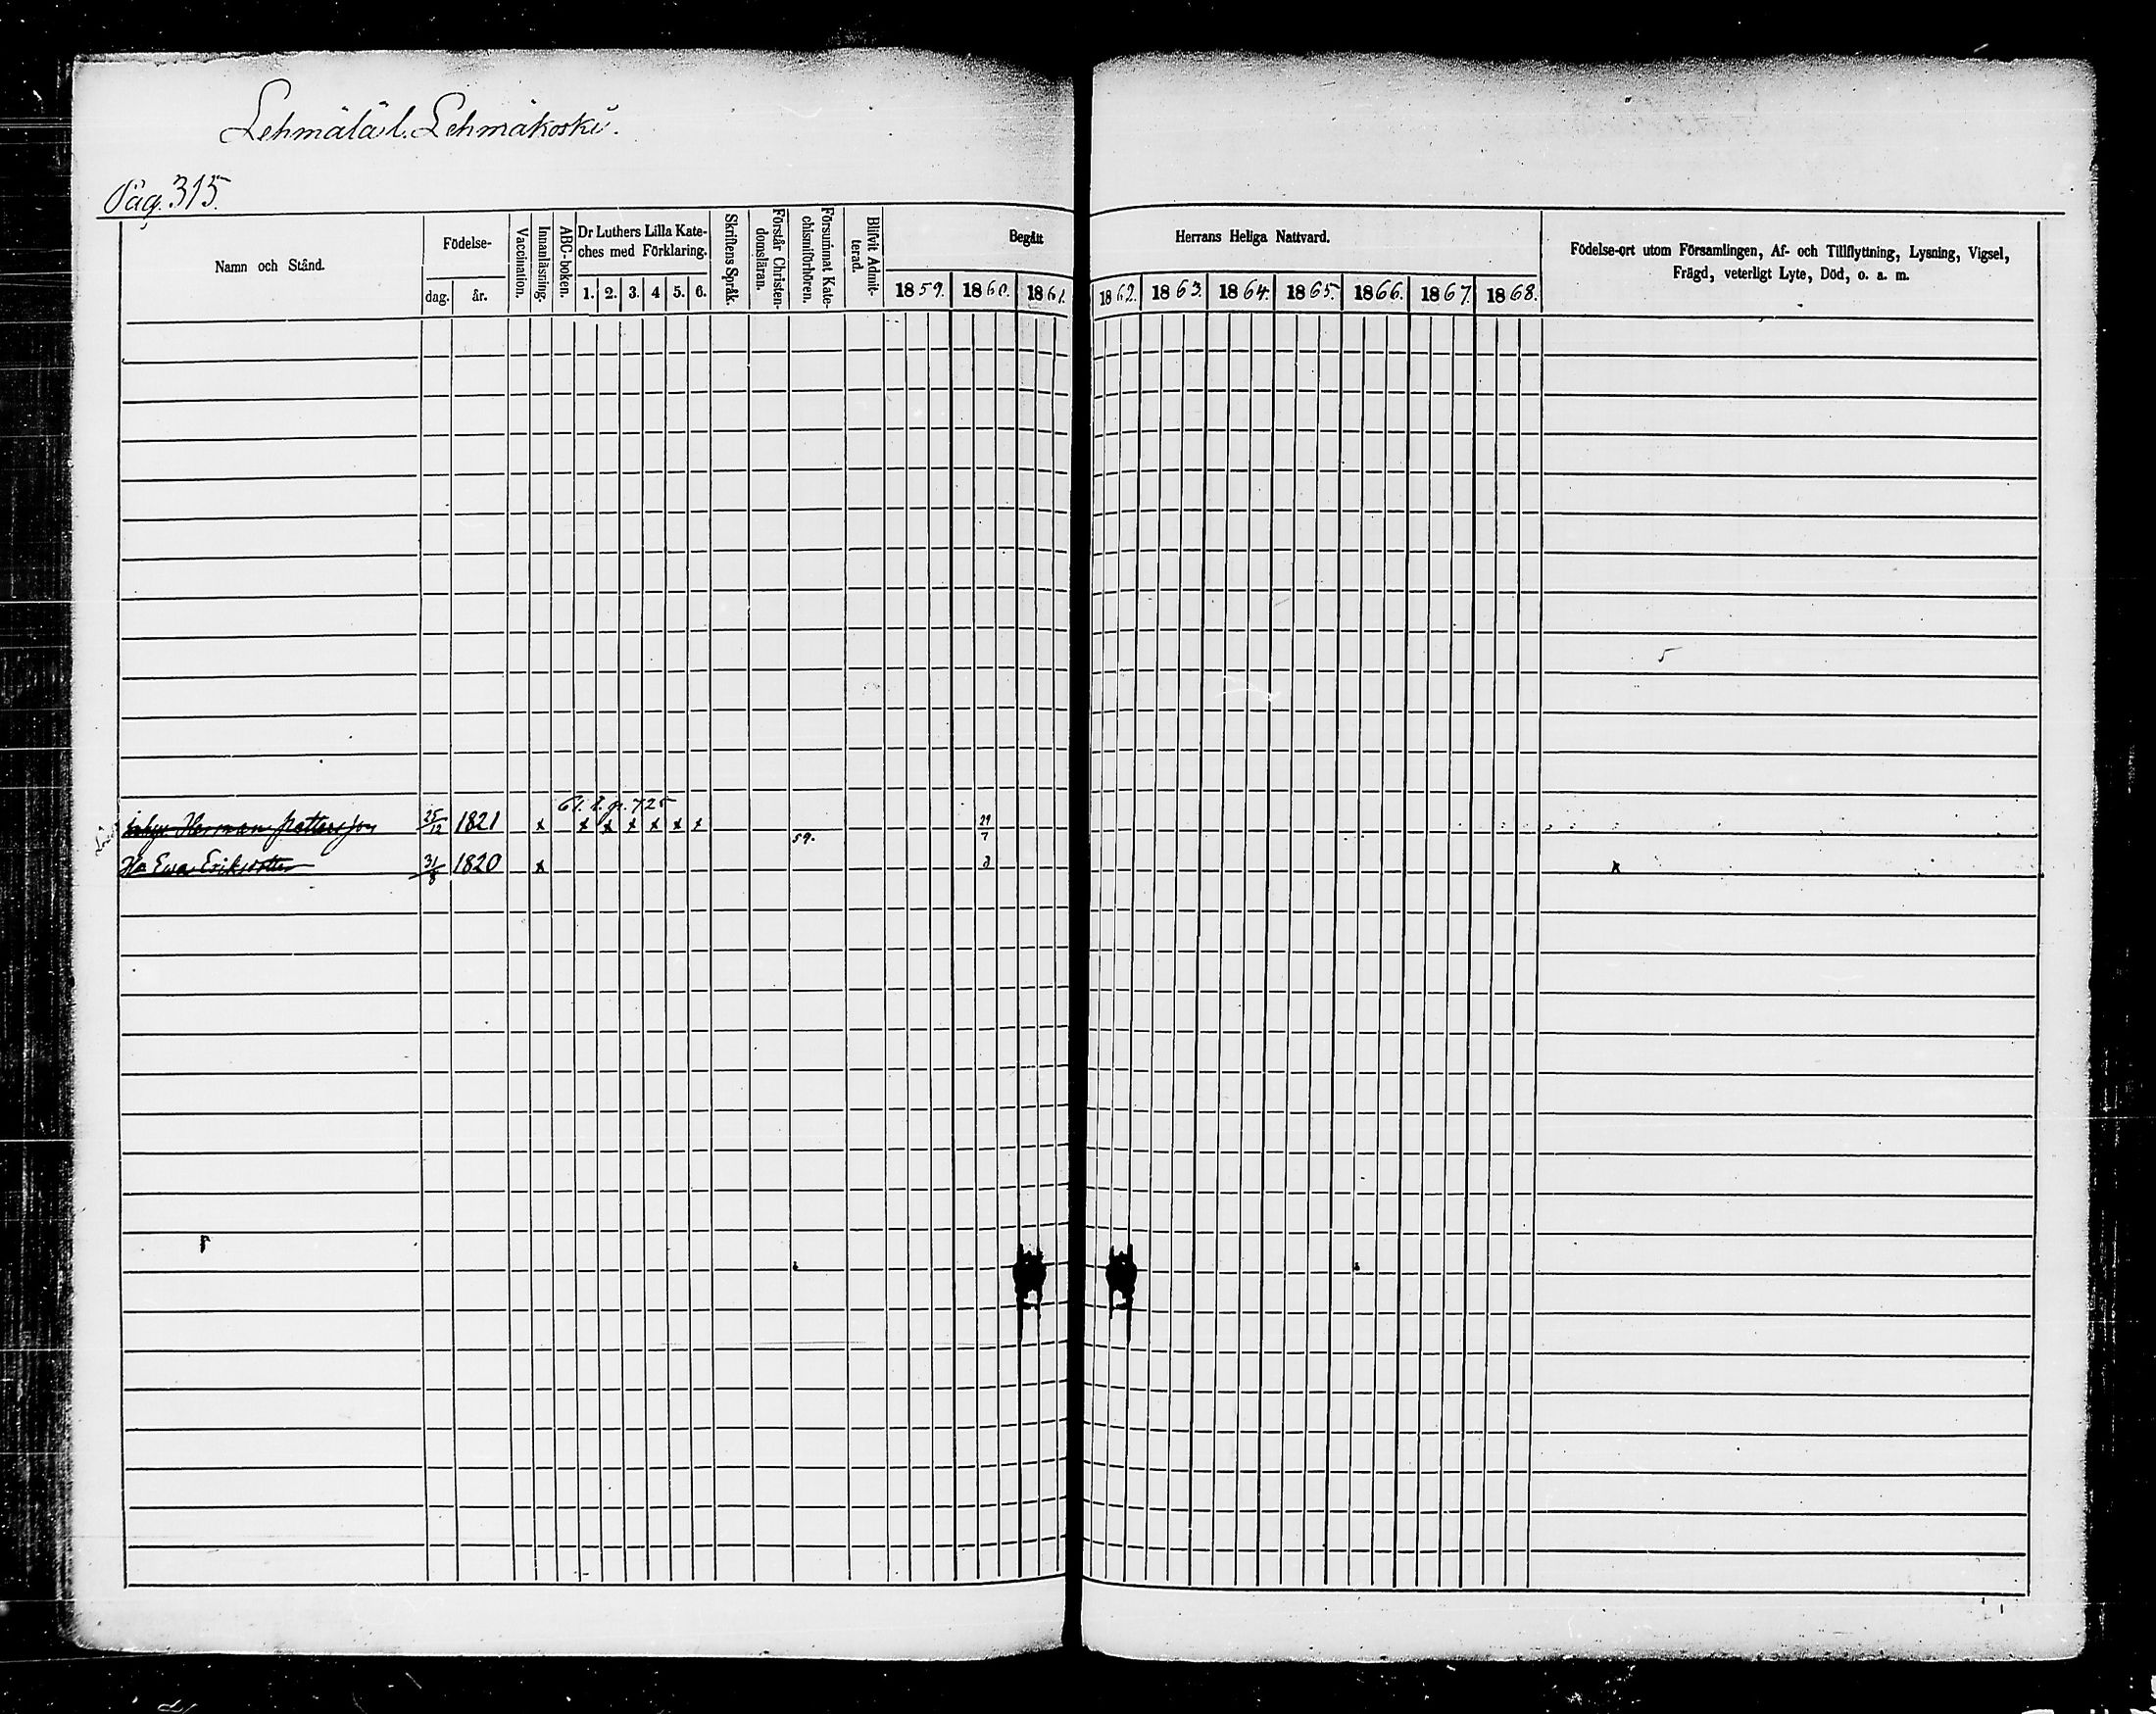 Lehmälä l. Lehmäkoski.
Pag. 315.
Namn och Stånd.
Födelse-
dag.
år.
Vaccination.
Innanläsning.
ABC-boken.
Dr Luthers Lilla Kate-
ches med Förklaring.
1. 2. 3. 4 5. 6.
Skriftens Språk.
Förstår Christen-
domsläran.
Försummat Kate-
chismiförhören.
Blifvit Admit-
terad.
Begått
Herrans Heliga Nattvard.
1859. 1860. 1861. 1862. 1863. 1864. 1865. 1866. 1867. 1868.
Födelse-ort utom Församlingen, Af- och Tillflyttning, Lysning, Vigsel,
Frägd, veterligt Lyte, Död, o. a. m.
5
61. p. 725
Herman 25/12 1821 x x x x x x x 59. 29/7
Ewa Eriksdotter 31/8 1820 x 8
x